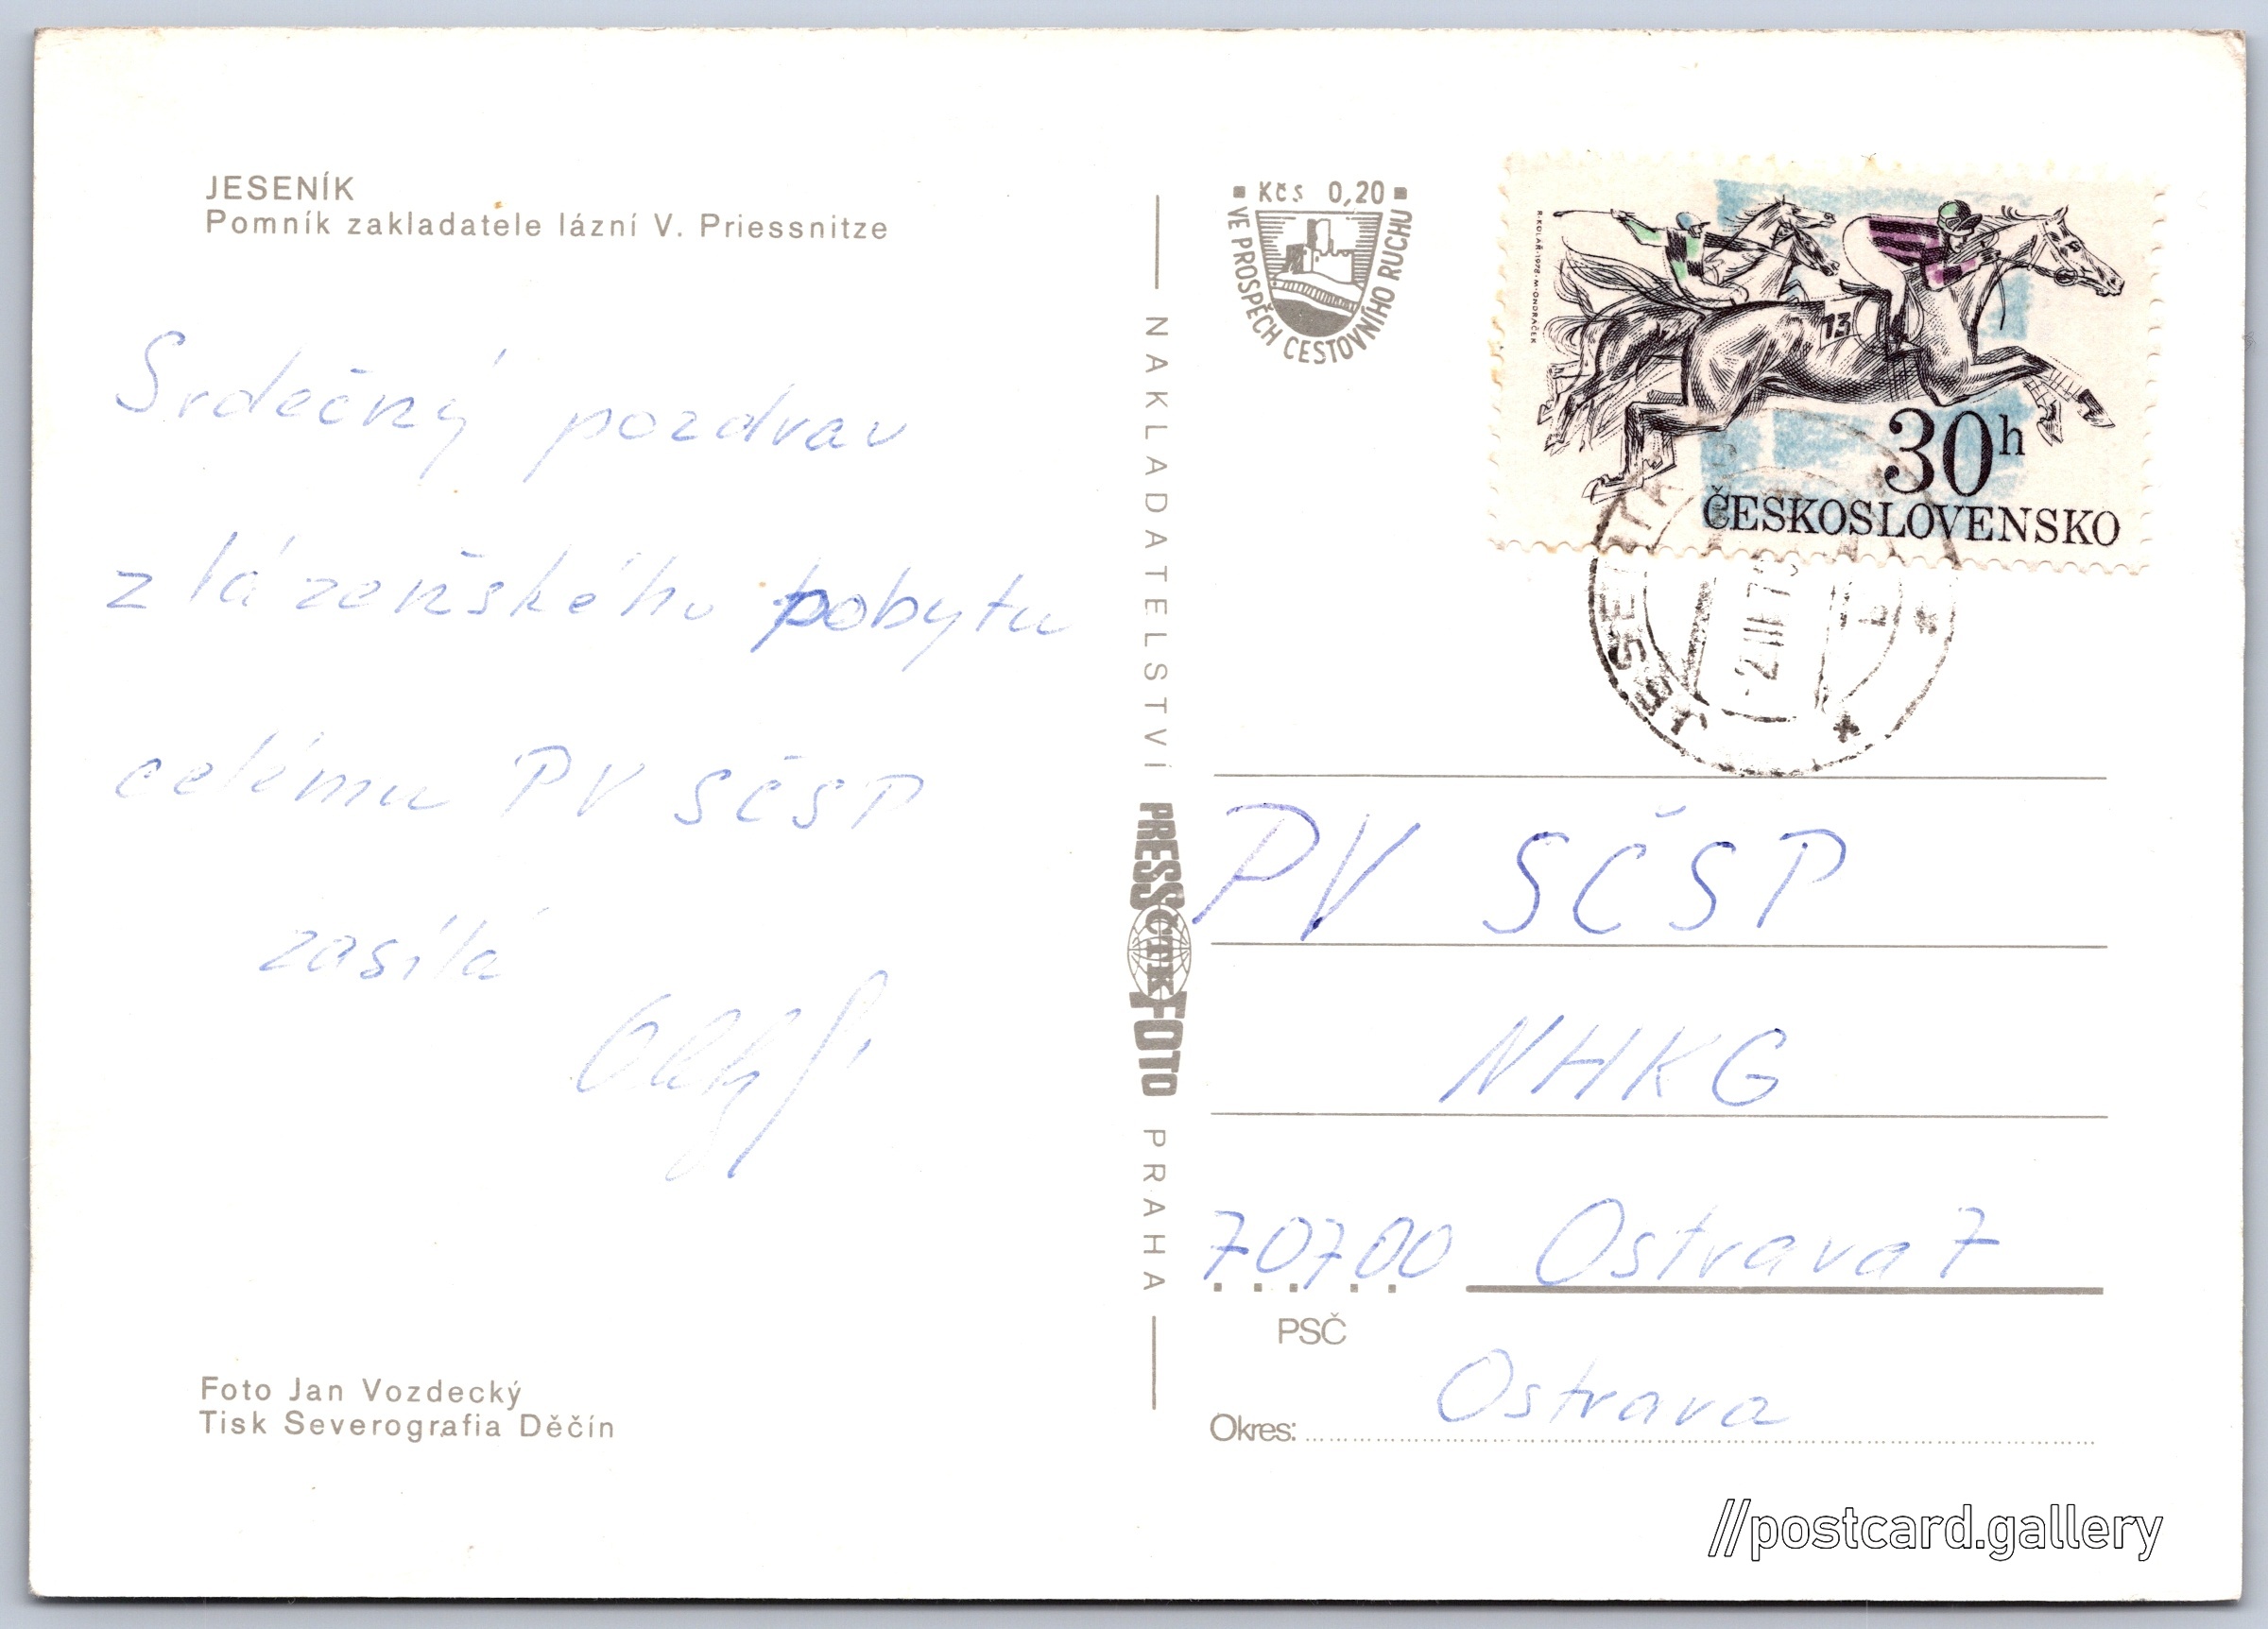 JESENÍK
Pomník zakladatele lázní V. Priessnitze
Srdečný pozdrav
z lázeňského pobytu
celému PV SČSP
zasílá
Foto Jan Vozdecký
Tisk Severografia Děčín
NAKLADATELSTVÍ PRESSFOTO PRAHA
ČTK
Kčs 0,20
VE PROSPĚCH CESTOVNÍHO RUCHU
R.KOLÁŘ·1978·M·ONDRÁČEK
13
30h
ČESKOSLOVENSKO
JESE
-2.III.7
PV SČSP
NHKG
70700 Ostrava 7
PSČ
Okres: Ostrava
//postcard.gallery